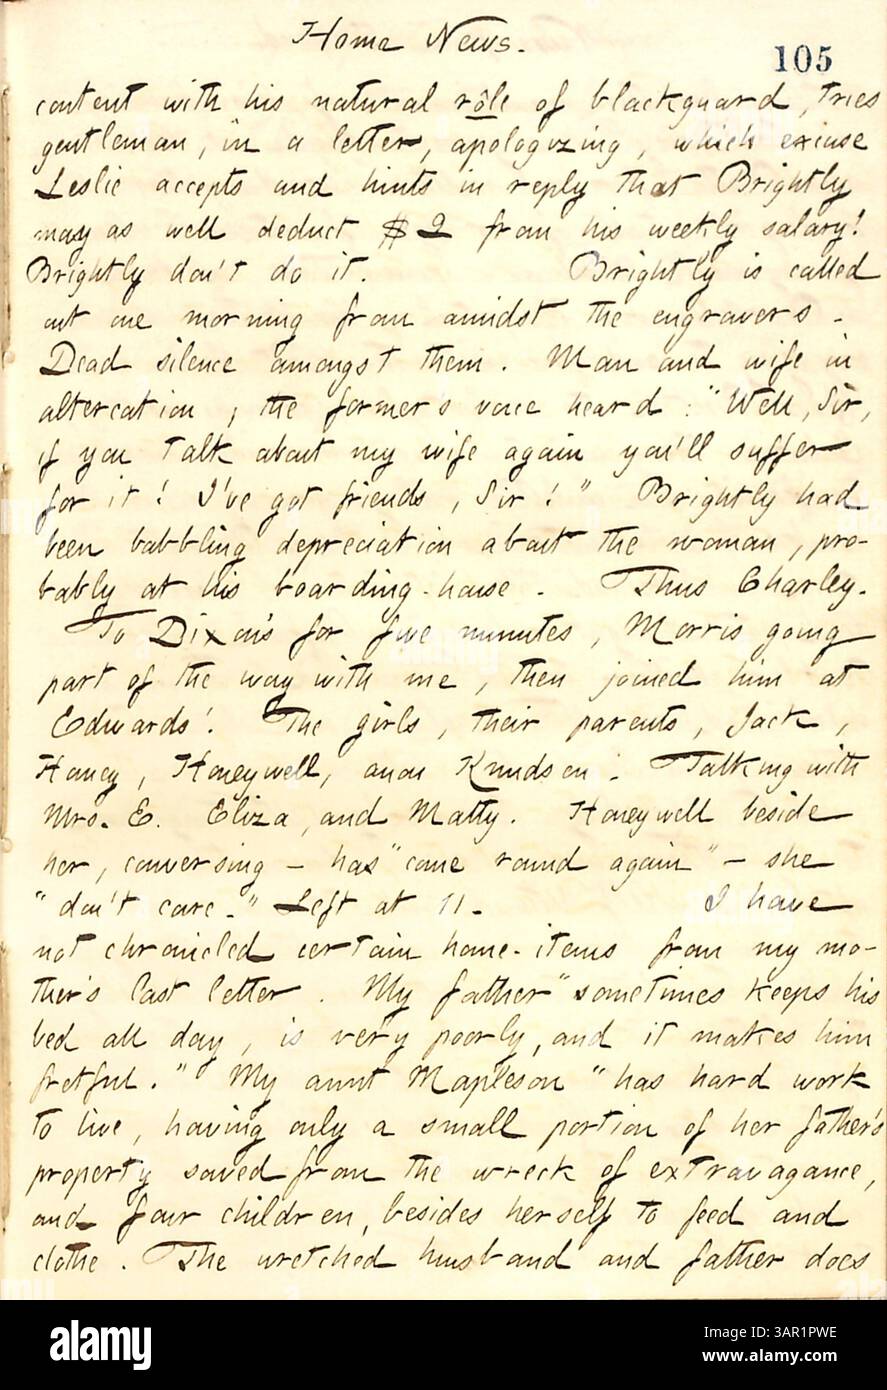 Home News.
105
content with his natural rôle of blackguard, tries
gentleman, in a letter, apologizing, which excuse
Leslie accepts and hints in reply that Brightly
may as well deduct $2 from his weekly salary!
Brightly don't do it. Brightly is called
out one morning from amidst the engravers -
Dead silence amongst them. Man and wife in
altercation, the former's voice heard: "Well, Sir,
if you talk about my wife again you'll suffer
for it! I've got friends, Sir!" Brightly had
been babbling depreciation about the woman, pro-
bably at his boarding-house. Thus Charley.
To Dixon's for five minutes, Morris going
part of the way with me, then joined him at
Edwards'. The girls, their parents, Jack,
Haney, Honeywell, anon Knudsen. Talking with
Mrs. E. Eliza, and Matty. Honeywell beside
her, conversing - has "come round again" - she
"don't care." Left at 11. I have
not chronicled certain home-items from my mo-
ther's last letter. My father "sometimes keeps his
bed all day, is very poorly, and it makes him
fretful." My aunt Mapleson "has hard work
to live, having only a small portion of her father's
property saved from the wreck of extravagance,
and four children, besides herself to feed and
clothe. The wretched husband and father does
alamy
Image ID: 3AR1PWE
www.alamy.com